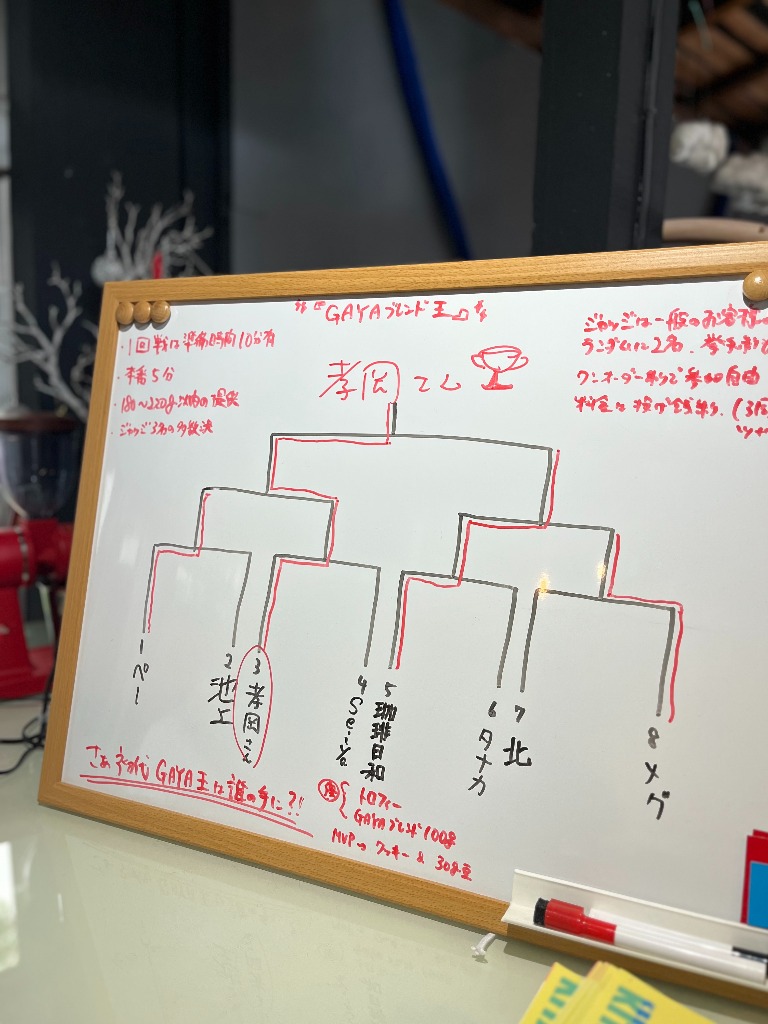 『GAYAブレンド王』
・1回戦は準備時間10分有
・本番5分
・180〜220g以内の提供
・ジャッジ3名の多数決
ジャッジは一般のお客様
ランダムに2名.
ワンオーダー制で参加自由
料金は投げ銭制. (3回
孝岡さん
1 ペー
2 池上
3 孝岡さん
4 Seiya
5 珈琲日和
6 タナカ
7 北
8 メグ
さぁ初代GAYA王は誰の手に?!
優 トロフィー
GAYAブレンド100g
MVP→クッキー & 30g豆